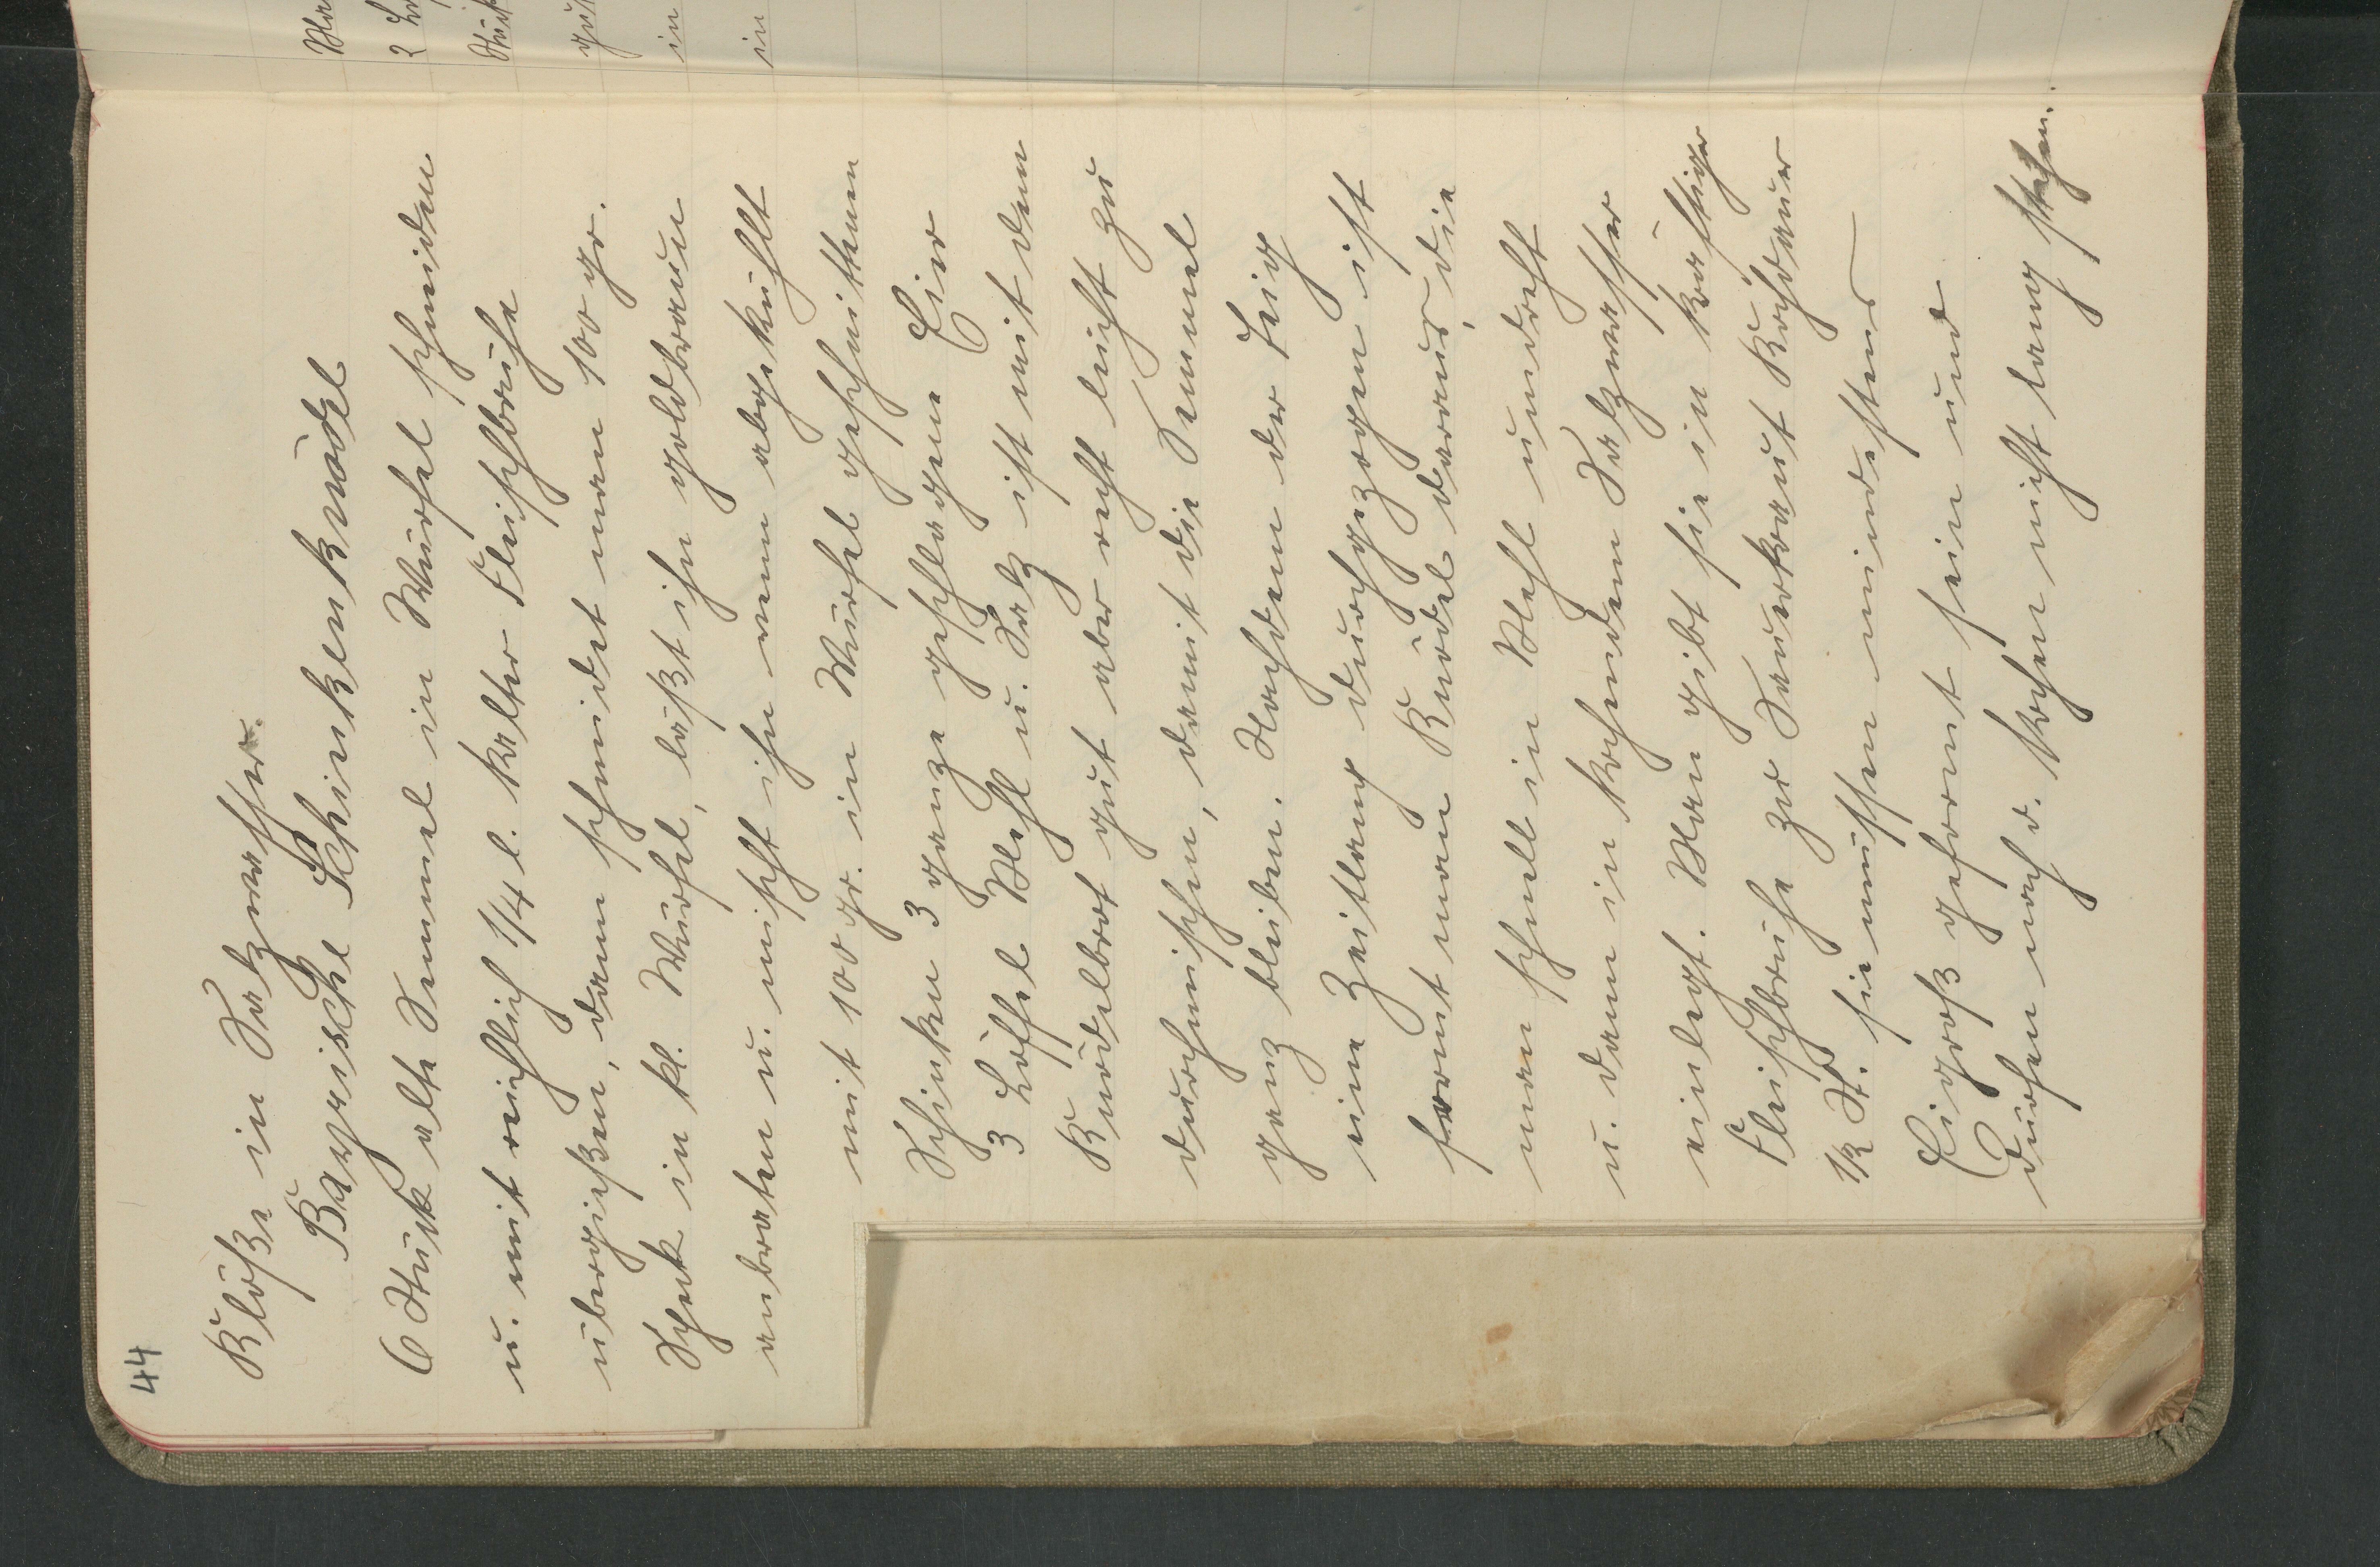 44
Klöße in Salzwasser.
Bayrische Schinkenknödel
6 Stück alte Semmel in Würfel schneiden
u. mit reichlich 1/4 l. kalter Fleischbrühe
übergießen, dann schneidet man 100 gr.
Speck in kl. Würfel, läßt ihn goldbraun
anbraten u. mischt ihn wenn abgekühlt
mit 100 gr. in Würfel geschnittenen
Schinken 3 ganze geschlagene Eier
3 Löffel Mehl u. Salz ist mit dem
Knödelbrot gut aber recht leicht zu
durchmischen, damit die Semmel
ganz bleiben. Nachdem der Teig
eine Zeitlang durchgezogen ist
formt man Knödel daraus, die
man schnell in Mehl umdreht
u. dann in kochendem Salzwasser
einlegt. Man gibt sie in kräftiger
Fleischbrühe zur Sauerkraut Kochdauer
1/2 St. sie müssen mindestens
Eigroß geformt sein und
dürfen nach d. Kochen nicht lang stehen.
Man
2
Stück
gut
in
in